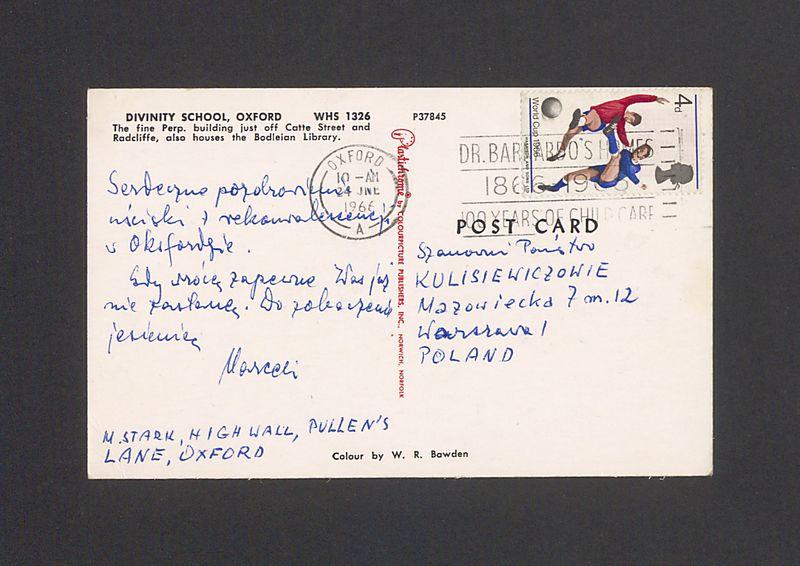 DIVINITY SCHOOL, OXFORD WHS 1326
The fine Perp. building just off Catte Street and
Radcliffe, also houses the Bodleian Library.
P37845
Plastichrome ® by COLOURPICTURE PUBLISHERS, INC., NORWICH, NORFOLK
World Cup 1966
4d
OXFORD
10 - AM
24 JNE
1966
A
DR. BARNARDO'S HOMES
1866 1966
100 YEARS OF CHILD CARE
POST CARD
Serdeczne pozdrowienia
uściski z rekonwalescencji
w Oksfordzie.
Gdy wrócę zapewne Was już
nie zastanę. Do zobaczenia
jesienią
Marceli
M. STARK, HIGH WALL, PULLEN'S
LANE, OXFORD
Szanowni Państwo
KULISIEWICZOWIE
Mazowiecka 7 m. 12
Warszawa 1
POLAND
Colour by W. R. Bawden